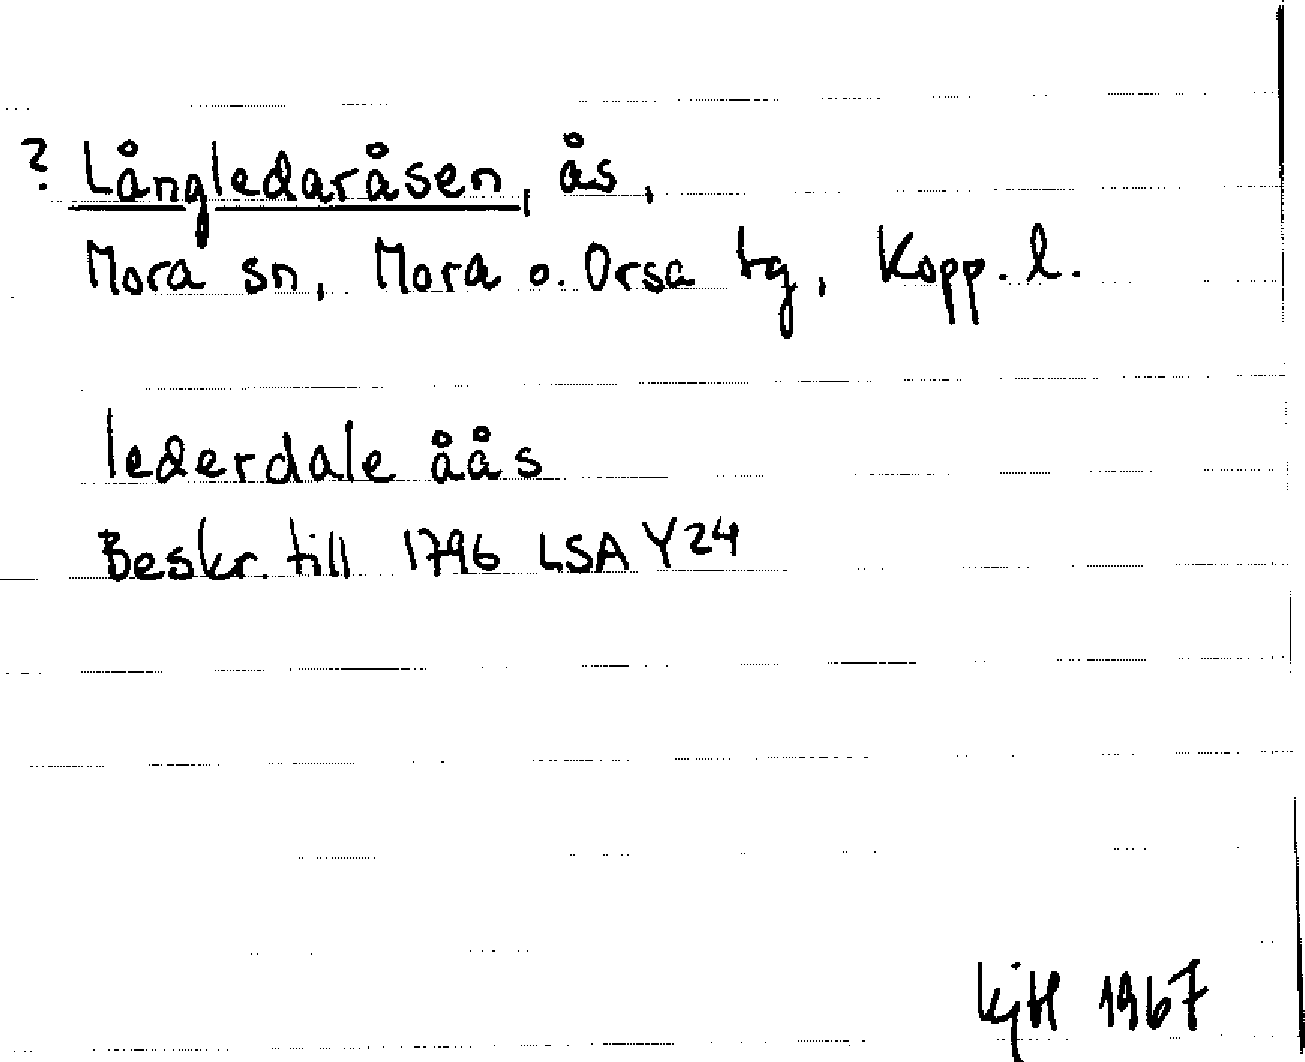 ? Långledaråsen, ås,
Mora sn, Mora o. Orsa tg, Kopp. l.
lederdale åås
Beskr. till 1796 LSA Y24
KjH 1967